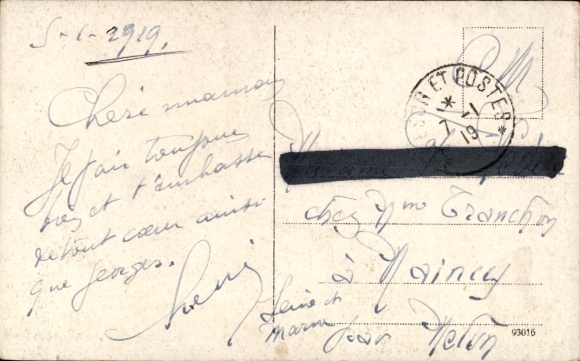 5-1-1919.
Chère maman
Je vais toujours
bien et t'embrasse
de tout cœur ainsi
que Georges.
F M
TRESOR ET POSTES
* 7 -1 19 *
chez Mme Tranchon
à Maincy
Seine et
Marne par Melun
93016